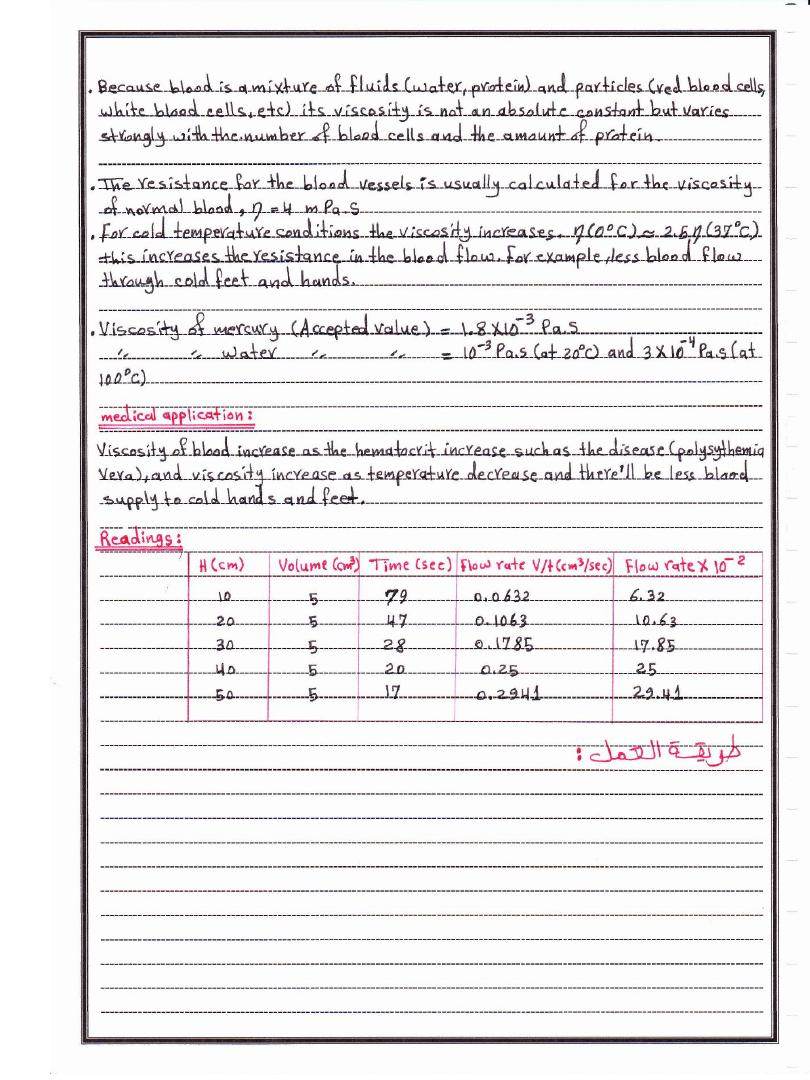 . Because blood is a mixture of fluids (water, protein) and particles (red blood cells,
white blood cells, etc) its viscosity is not an absolute constant but varies
strongly with the number of blood cells and the amount of protein.
. The resistance for the blood vessels is usually calculated for the viscosity
of normal blood, η = 4 m Pa.S
. For cold temperature conditions the viscosity increases. η(0°C) ≈ 2.5η(37°C)
this increases the resistance in the blood flow. for example, less blood flow
through cold feet and hands.
. Viscosity of mercury (Accepted value) = 1.8 X10⁻³ Pa.S
〃 〃 water 〃 〃 = 10⁻³ Pa.s (at 20°C) and 3X10⁻⁴ Pa.s (at
100°C)
medical application:
Viscosity of blood increase as the hematocrit increase such as the disease (polysythemia
Vera), and viscosity increase as temperature decrease and there'll be less blood
supply to cold hands and feet.
Readings:
H (cm) Volume (cm³) Time (sec) flow rate V/t (cm³/sec) Flow rate X 10⁻²
10 5 79 0.0632 6.32
20 5 47 0.1063 10.63
30 5 28 0.1785 17.85
40 5 20 0.25 25
50 5 17 0.2941 29.41
طريقة العمل :